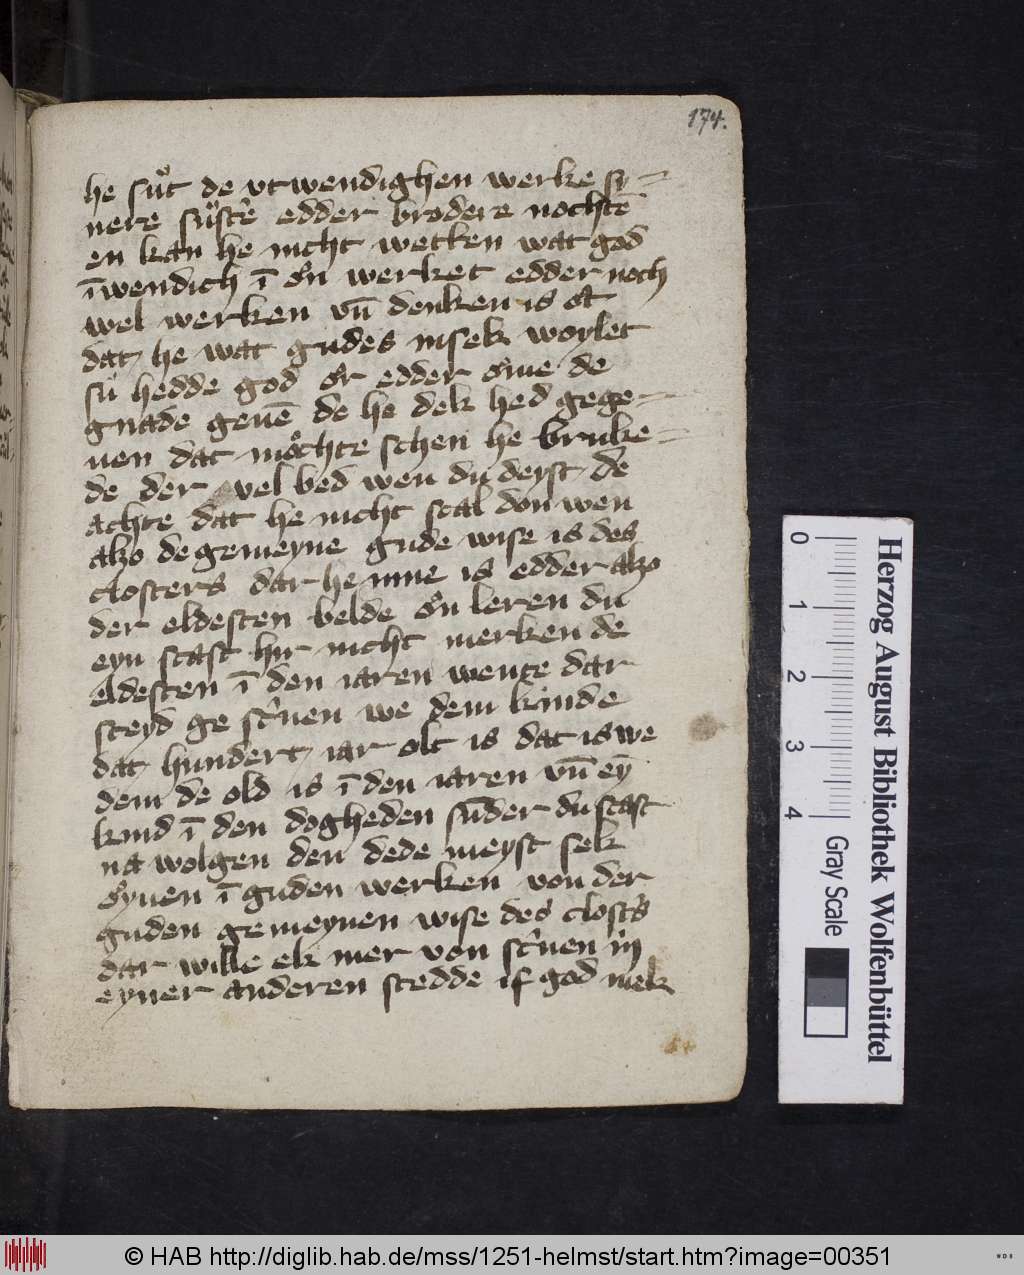 174.
he suͦt de vtwendighen werke sy-
nere suͦstere edder brodere nochtē
en kan he nicht wetken wat god
īwendich ī oͤn werket edder noch
wel werken vn̄ denken is ot
dat he wat gudes nisek woylet
su hedde god oͤr edder oͤme de
gnade geuē de he dek hed gege-
uen dat moͤchte schen he bruke-
de der vel bed wen du deyst de
achte dat he nicht scal don wen
alzo de gemeyne gude wise is des
closters dar he inne is edder alzo
der eldesten belde oͤn leren du
eyn scast hir nicht merken de
eldesten ī den iaren wente dar
steyd ge scͬuen we dem kinde
dat hundert iar olt is dat is we
dem de old is ī den iaren vn̄ eȳ
kind ī den dogheden sūder du scast
na wolgen den dede meyst sek
oͤynen ī guden werken von der
guden gemeynen wise des closts
dar wille ek mer von scͬuen in
eyner anderen stedde if god mek
Herzog August Bibliothek Wolfenbüttel
0 1 2 3 4 Gray Scale
© HAB http://diglib.hab.de/mss/1251-helmst/start.htm?image=00351
WDB